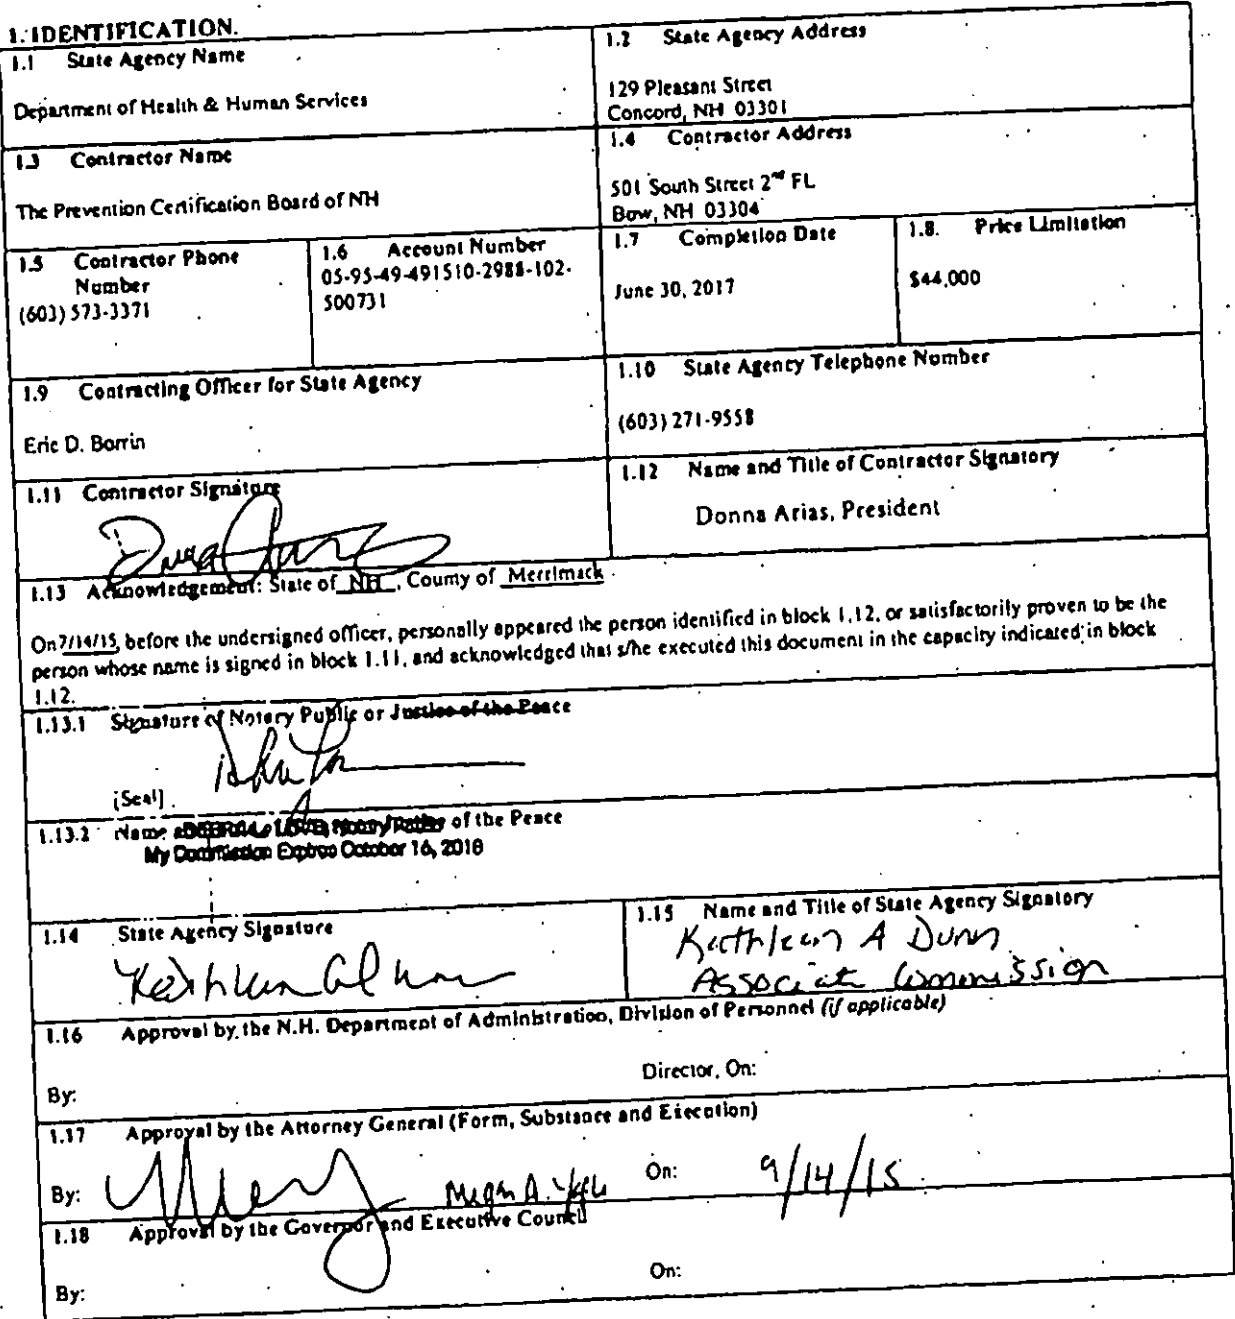 1. IDENTIFICATION.
1.1 State Agency Name
Department of Health & Human Services
1.2 State Agency Address
129 Pleasant Street
Concord, NH 03301
1.3 Contractor Name
The Prevention Certification Board of NH
1.4 Contractor Address
501 South Street 2nd FL
Bow, NH 03304
1.5 Contractor Phone
Number
(603) 573-3371
1.6 Account Number
05-95-49-491510-2988-102-
500731
1.7 Completion Date
June 30, 2017
1.8. Price Limitation
$44,000
1.9 Contracting Officer for State Agency
Eric D. Borrin
1.10 State Agency Telephone Number
(603) 271-9558
1.11 Contractor Signature
1.12 Name and Title of Contractor Signatory
Donna Arias, President
1.13 Acknowledgement: State of NH, County of Merrimack
On 7/14/15, before the undersigned officer, personally appeared the person identified in block 1.12, or satisfactorily proven to be the
person whose name is signed in block 1.11, and acknowledged that s/he executed this document in the capacity indicated in block
1.12.
1.13.1 Signature of Notary Public or Justice of the Peace
[Seal]
1.13.2 Name Notary Public of the Peace
My Commission Expires October 16, 2018
1.14 State Agency Signature
1.15 Name and Title of State Agency Signatory
Kathleen A Dunn
Associate Commission
1.16 Approval by the N.H. Department of Administration, Division of Personnel (if applicable)
By: Director, On:
1.17 Approval by the Attorney General (Form, Substance and Execution)
By: Megan A. On: 9/14/15
1.18 Approval by the Governor and Executive Council
By: On: